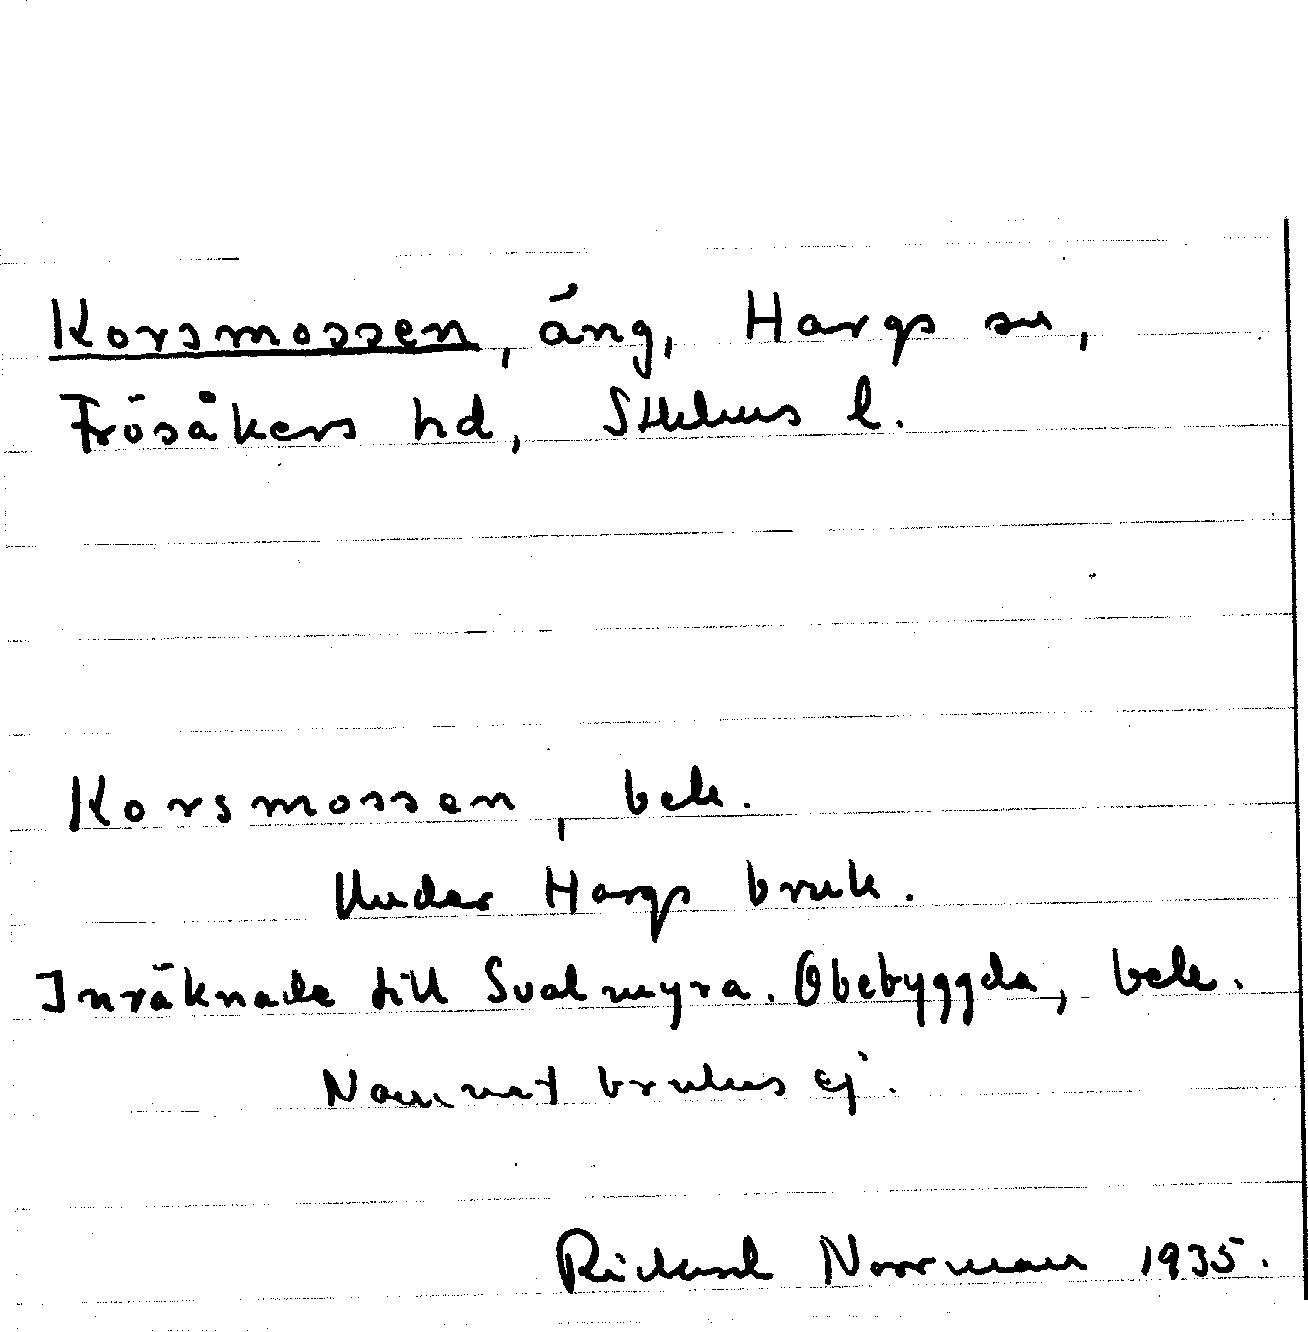 Korsmossen, äng, Hargs sn,
Frösåkers hd, Sthlms l.
Korsmossen, bek.
Under Hargs bruk.
Inräknade till Svalmyra. Obebyggda, bek.
Namnet brukas ej.
Rickard Norrman 1935.